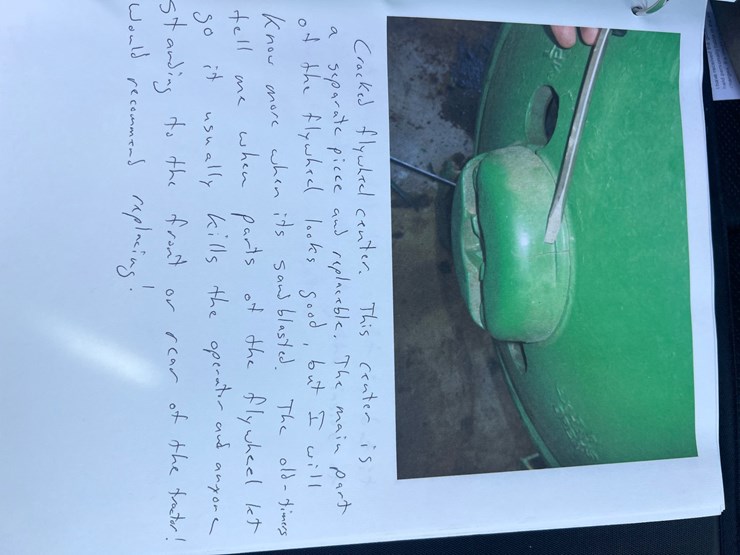 Cracked flywheel center. This center is
a separate piece and replaceble. The main part
of the flywheel looks good, but I will
know more when its sandblasted. The old-timers
tell me when parts of the flywheel let
go it usually kills the operator and anyone
standing to the front or rear of the tractor!
Would recommend replacing!